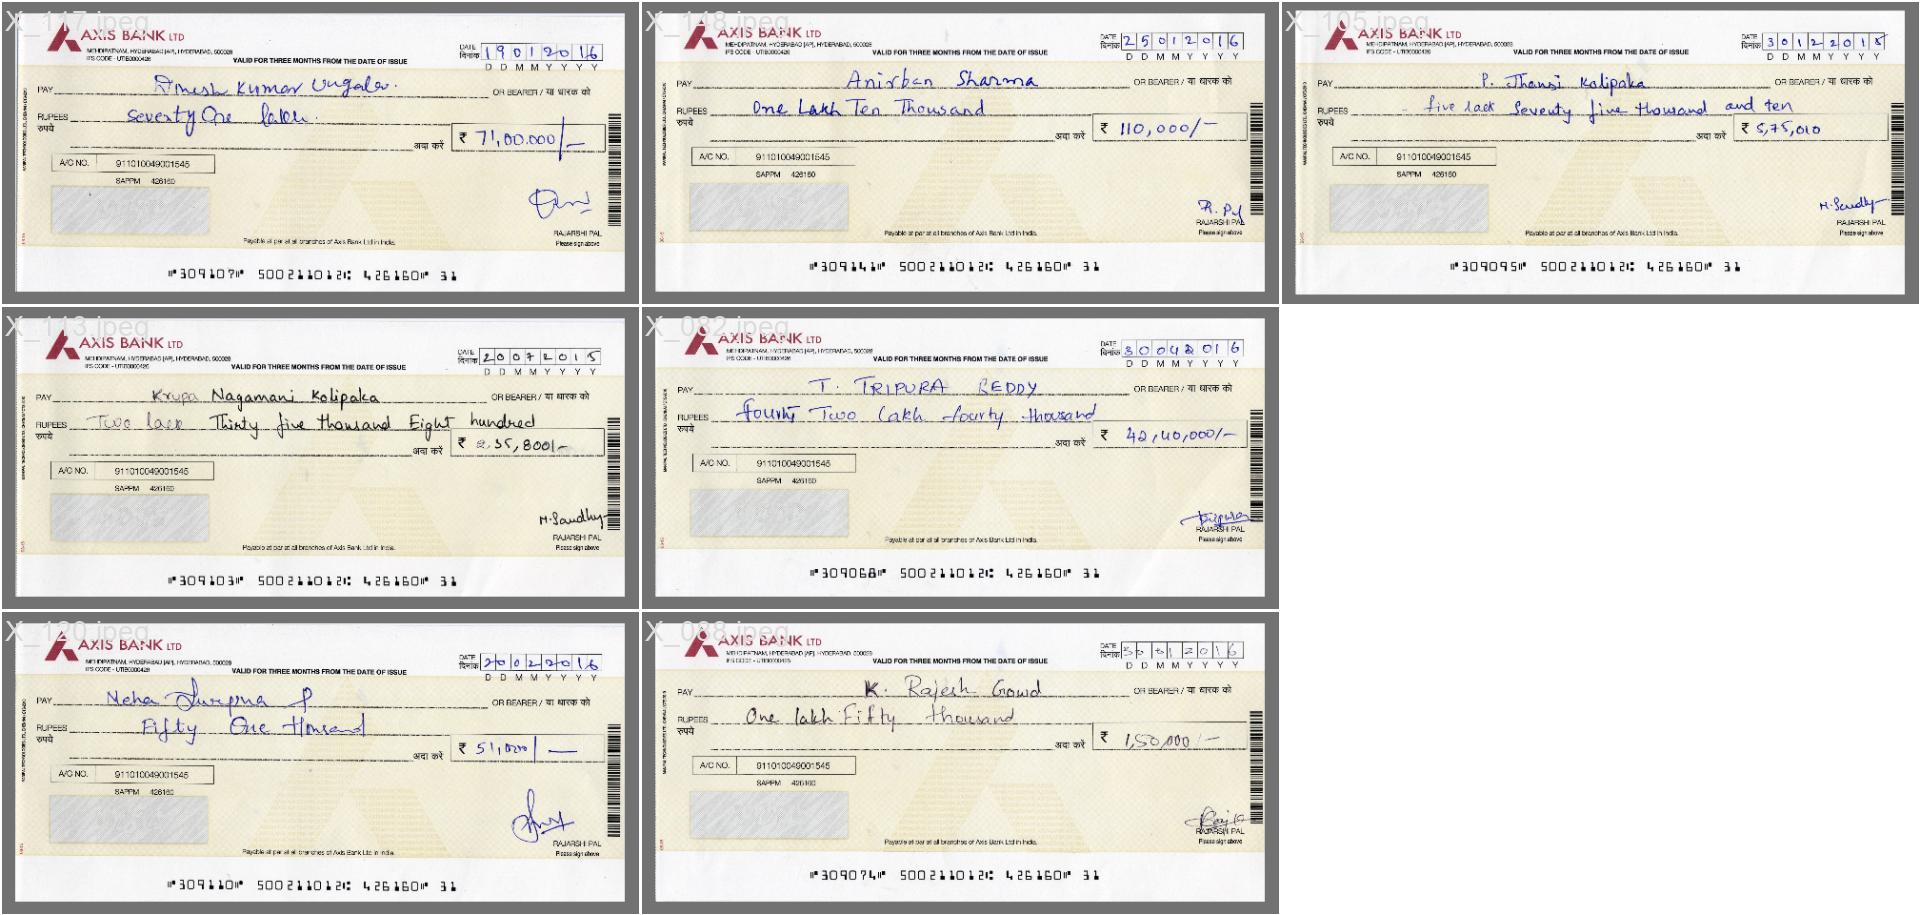 X_117.jpeg
AXIS BANK LTD
MEHDIPATNAM, HYDERABAD [AP], HYDERABAD, 500028
IFS CODE - UTIB0000426
VALID FOR THREE MONTHS FROM THE DATE OF ISSUE
DATE
दिनांक 19012016
D D M M Y Y Y Y
PAY Dinesh Kumar Vngalar. OR BEARER / या धारक को
RUPEES रुपये Seventy One lakh.
अदा करें ₹ 71,00.000/-
A/C NO. 911010049001545
SAPPM 426160
RAJARSHI PAL
Please sign above
Payable at par at all branches of Axis Bank Ltd in India.
"309107" 500211012: 426160" 31
X_118.jpeg
AXIS BANK LTD
MEHDIPATNAM, HYDERABAD [AP], HYDERABAD, 500028
IFS CODE - UTIB0000426
VALID FOR THREE MONTHS FROM THE DATE OF ISSUE
DATE
दिनांक 25012016
D D M M Y Y Y Y
PAY Anirban Sharma OR BEARER / या धारक को
RUPEES रुपये One Lakh Ten Thousand
अदा करें ₹ 110,000/-
A/C NO. 911010049001545
SAPPM 426160
R. Pal
RAJARSHI PAL
Please sign above
Payable at par at all branches of Axis Bank Ltd in India.
"309141" 500211012: 426160" 31
X_105.jpeg
AXIS BANK LTD
MEHDIPATNAM, HYDERABAD [AP], HYDERABAD, 500028
IFS CODE - UTIB0000426
VALID FOR THREE MONTHS FROM THE DATE OF ISSUE
DATE
दिनांक 30122015
D D M M Y Y Y Y
PAY P. Jhansi Kolipaka OR BEARER / या धारक को
RUPEES रुपये five lack Seventy five thousand and ten
अदा करें ₹ 5,75,010
A/C NO. 911010049001545
SAPPM 426160
M. Sandhy
RAJARSHI PAL
Please sign above
Payable at par at all branches of Axis Bank Ltd in India.
"309095" 500211012: 426160" 31
X_113.jpeg
AXIS BANK LTD
MEHDIPATNAM, HYDERABAD [AP], HYDERABAD, 500028
IFS CODE - UTIB0000426
VALID FOR THREE MONTHS FROM THE DATE OF ISSUE
DATE
दिनांक 20072015
D D M M Y Y Y Y
PAY Krupa Nagamani Kolipaka OR BEARER / या धारक को
RUPEES रुपये Two lack Thirty five thousand Eight hundred
अदा करें ₹ 2,35,800/-
A/C NO. 911010049001545
SAPPM 426160
M. Sandhy
RAJARSHI PAL
Please sign above
Payable at par at all branches of Axis Bank Ltd in India.
"309103" 500211012: 426160" 31
X_082.jpeg
AXIS BANK LTD
MEHDIPATNAM, HYDERABAD [AP], HYDERABAD, 500028
IFS CODE - UTIB0000426
VALID FOR THREE MONTHS FROM THE DATE OF ISSUE
DATE
दिनांक 30042016
D D M M Y Y Y Y
PAY T. TRIPURA REDDY OR BEARER / या धारक को
RUPEES रुपये fourty Two Lakh fourty thousand
अदा करें ₹ 42,40,000/-
A/C NO. 911010049001545
SAPPM 426160
Tripura
RAJARSHI PAL
Please sign above
Payable at par at all branches of Axis Bank Ltd in India.
"309068" 500211012: 426160" 31
X_120.jpeg
AXIS BANK LTD
MEHDIPATNAM, HYDERABAD [AP], HYDERABAD, 500028
IFS CODE - UTIB0000426
VALID FOR THREE MONTHS FROM THE DATE OF ISSUE
DATE
दिनांक 20022016
D D M M Y Y Y Y
PAY Neha P OR BEARER / या धारक को
RUPEES रुपये Fifty One thousand
अदा करें ₹ 51,000/-
A/C NO. 911010049001545
SAPPM 426160
RAJARSHI PAL
Please sign above
Payable at par at all branches of Axis Bank Ltd in India.
"309110" 500211012: 426160" 31
X_088.jpeg
AXIS BANK LTD
MEHDIPATNAM, HYDERABAD [AP], HYDERABAD, 500028
IFS CODE - UTIB0000426
VALID FOR THREE MONTHS FROM THE DATE OF ISSUE
DATE
दिनांक 30012016
D D M M Y Y Y Y
PAY K. Rajesh Gowd OR BEARER / या धारक को
RUPEES रुपये One lakh Fifty thousand
अदा करें ₹ 1,50,000/-
A/C NO. 911010049001545
SAPPM 426160
RAJARSHI PAL
Please sign above
Payable at par at all branches of Axis Bank Ltd in India.
"309074" 500211012: 426160" 31